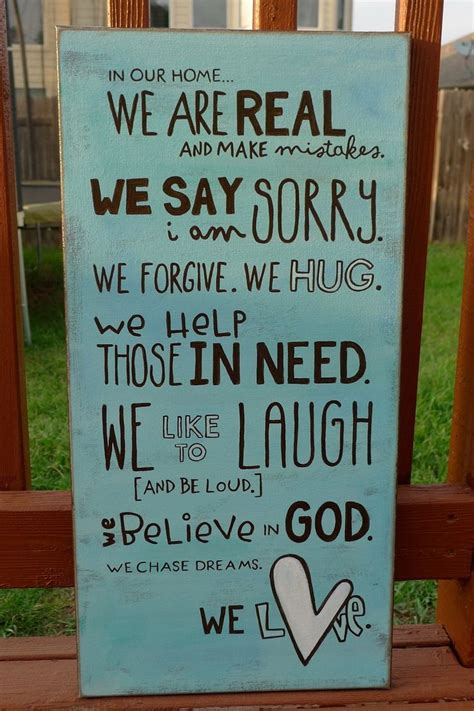 IN OUR HOME...
WE ARE REAL
AND MAKE mistakes.
WE SAY
i am SORRY.
WE FORGIVE. WE HUG.
we HELP
THOSE IN NEED.
WE LIKE TO LAUGH
[AND BE LOUD.]
we BeLieve IN GOD.
WE CHASE DREAMS.
WE Love.